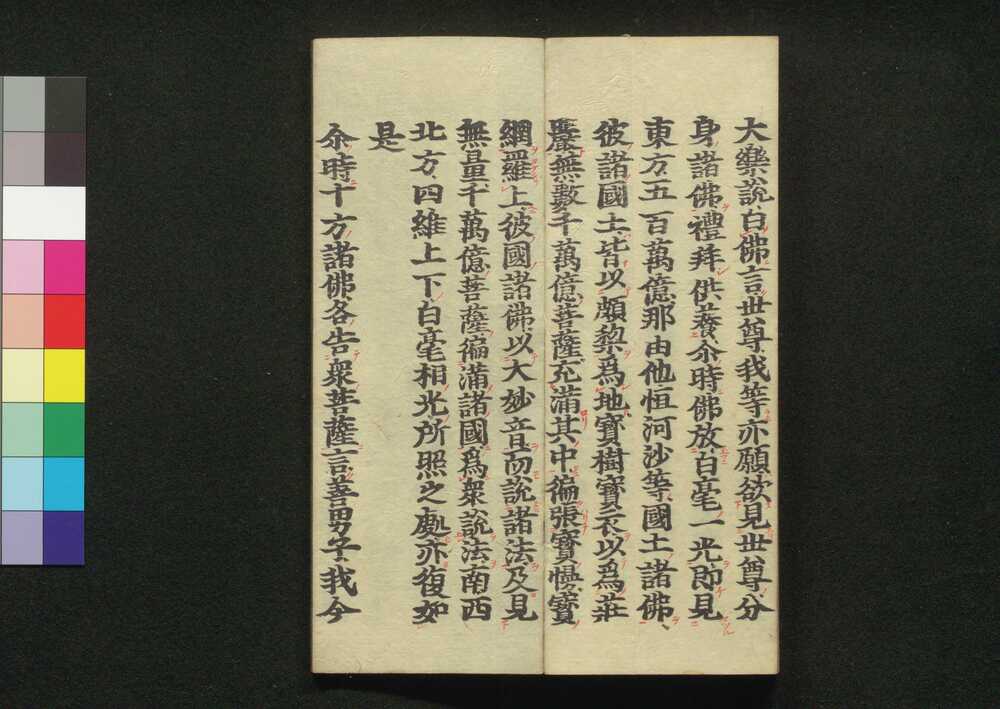 大樂說白佛言世尊我等亦願欲見世尊分
身諸佛禮拜供養尒時佛放白毫一光即見
東方五百萬億那由他恒河沙等國土諸佛
彼諸國土皆以頗黎爲地寶樹寶衣以爲莊
嚴無數千萬億菩薩充滿其中徧張寶幔寶
網羅上彼國諸佛以大妙音而說諸法及見
無量千萬億菩薩徧滿諸國爲衆說法南西
北方四維上下白毫相光所照之處亦復如
是
尒時十方諸佛各告衆菩薩言善男子我今